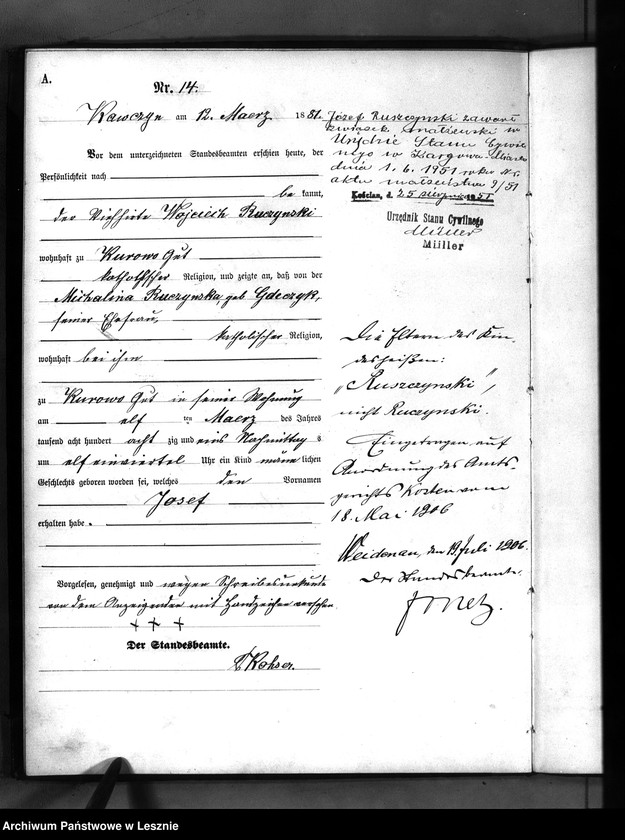 A.
Nr. 14.
Kawczyn am 12. Maerz 1881.
Vor dem unterzeichneten Standesbeamten erschien heute, der
Persönlichkeit nach
be kannt,
der Viehhirte Wojciech Ruczynski
wohnhaft zu Kurowo Gut
katholischer Religion, und zeigte an, daß von der
Michalina Ruczynska, geb Gdeczyk,
seiner Ehefrau,
katholischer Religion,
wohnhaft bei ihm
zu Kurowo Gut in seiner Wohnung
am elf ten Maerz des Jahres
tausend acht hundert acht zig und eins Nachmittag s
um elf einviertel Uhr ein Kind männ lichen
Geschlechts geboren worden sei, welches den Vornamen
Josef
erhalten habe.
Vorgelesen, genehmigt und wegen Schreibesunkunde
von dem Anzeigenden mit Handzeichen versehen.
+ + +
Der Standesbeamte.
Józef Ruszczynski zawarł
związek małżeński w
Urzędzie Stanu Cywil
nego w
dnia 1. 6. 1951 roku Nr.
aktu małżeństwa 9/51
Kościan, d. 25 sierpnia 1951
Urzędnik Stanu Cywilnego
Müller
Müller
Die Eltern des Kin
des heißen:
„Ruszczynski",
nicht Ruczynski.
Eingetragen auf
Anordnung des Amts-
gerichts Kosten vom
18. Mai 1906
den 19. Juli 1906.
Der Standesbeamte.
Archiwum Państwowe w Lesznie